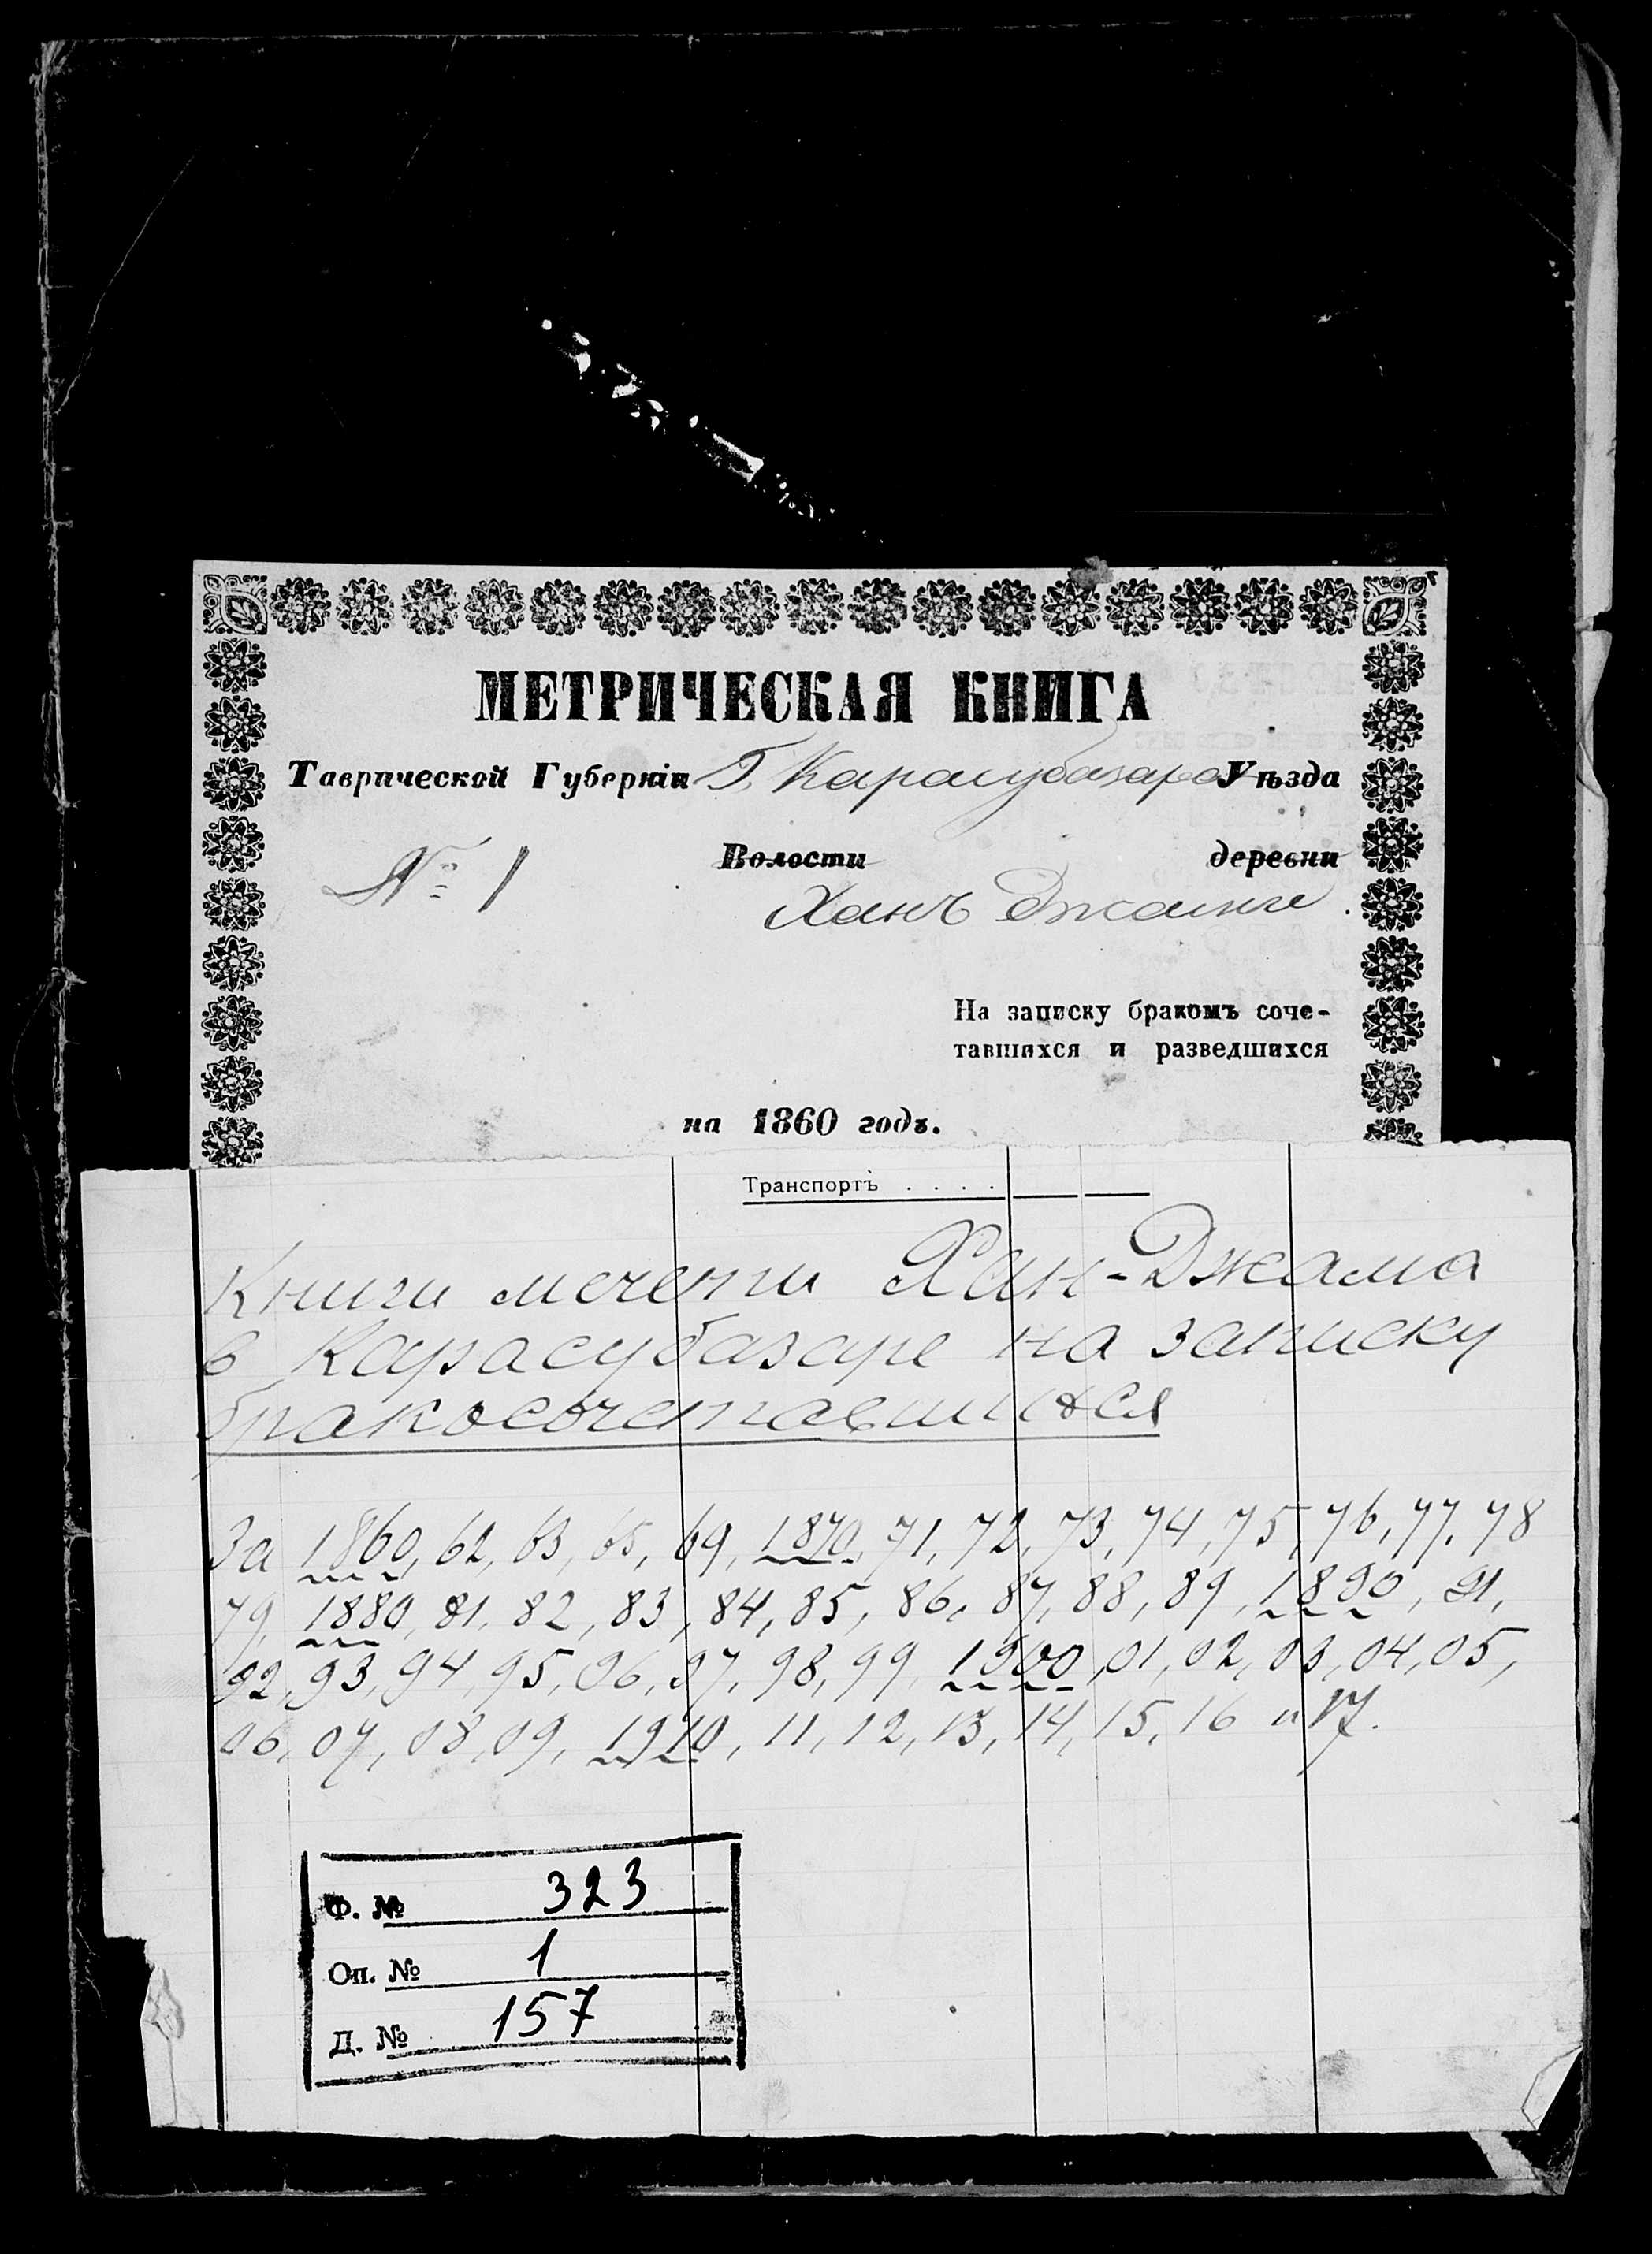 МЕТРИЧЕСКАЯ КНИГА
Таврической Губерніи Г. Карасубазара Уѣзда
№ 1 Волости деревни
Ханъ Джами
На записку бракомъ соче-
тавшихся и разведшихся
на 1860 годъ.
Транспортъ . . . .
Книги мечети Хан-Джама
в Карасубазаре на записку
бракосочетавшихся
За 1860, 62, 63, 65, 69, 1870, 71, 72, 73, 74, 75, 76, 77, 78
79, 1880, 81, 82, 83, 84, 85, 86, 87, 88, 89, 1890, 91,
92, 93, 94, 95, 96, 97, 98, 99, 1900, 01, 02, 03, 04, 05,
06, 07, 08, 09, 1910, 11, 12, 13, 14, 15, 16 и 17.
Ф. № 323
Оп. № 1
Д. № 157